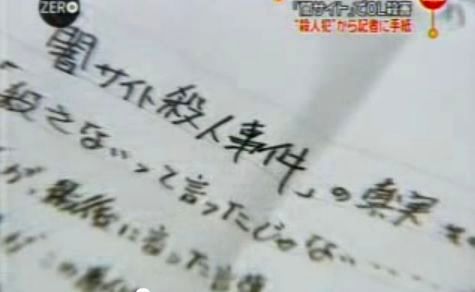 ZERO
「闇サイト」でOL殺害
“殺人犯”から記者に手紙
闇サイト殺人事件」の真実
殺さないって言ったじゃない……
が、最後に言った言葉
が この